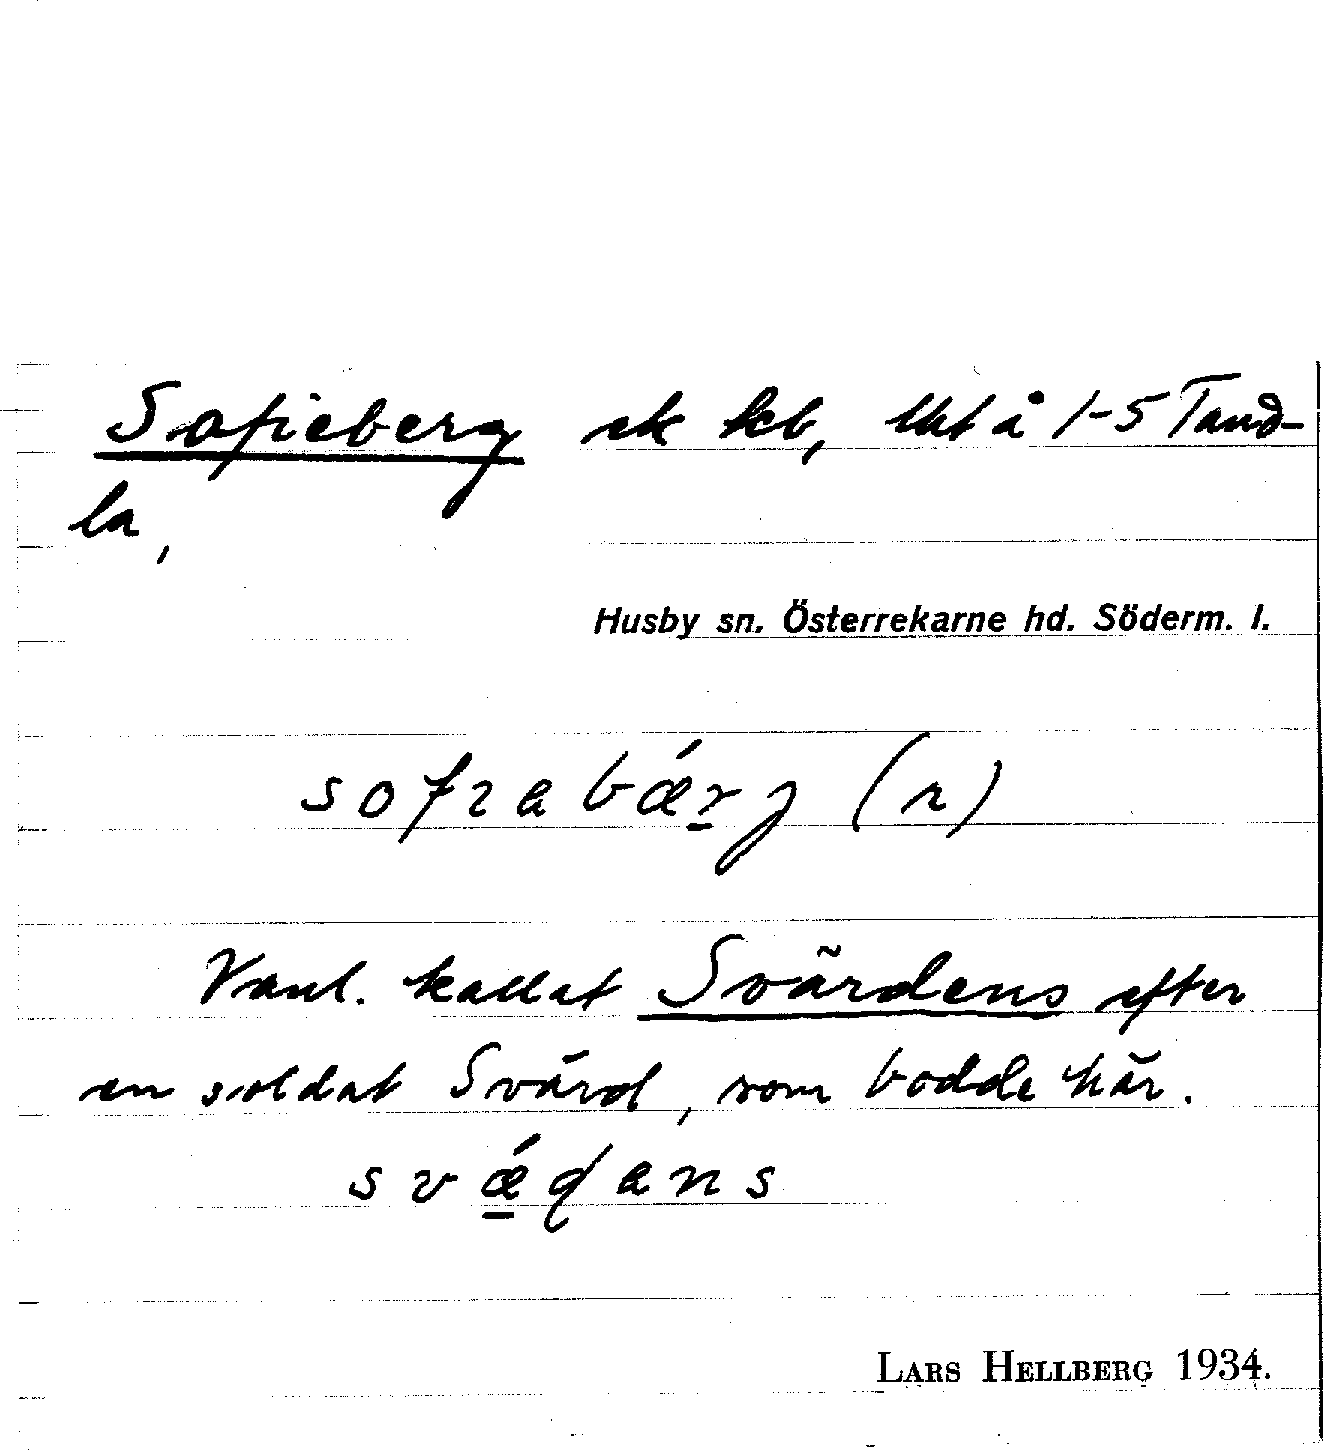 Sofieberg ek kb, lht å 1-5 Tand-
la,
Husby sn. Österrekarne hd. Söderm. l.
sofıabǽrg (n)
Vanl. kallat Svärdens efter
en soldat Svärd, som bodde här.
svǽɖans
LARS HELLBERG 1934.